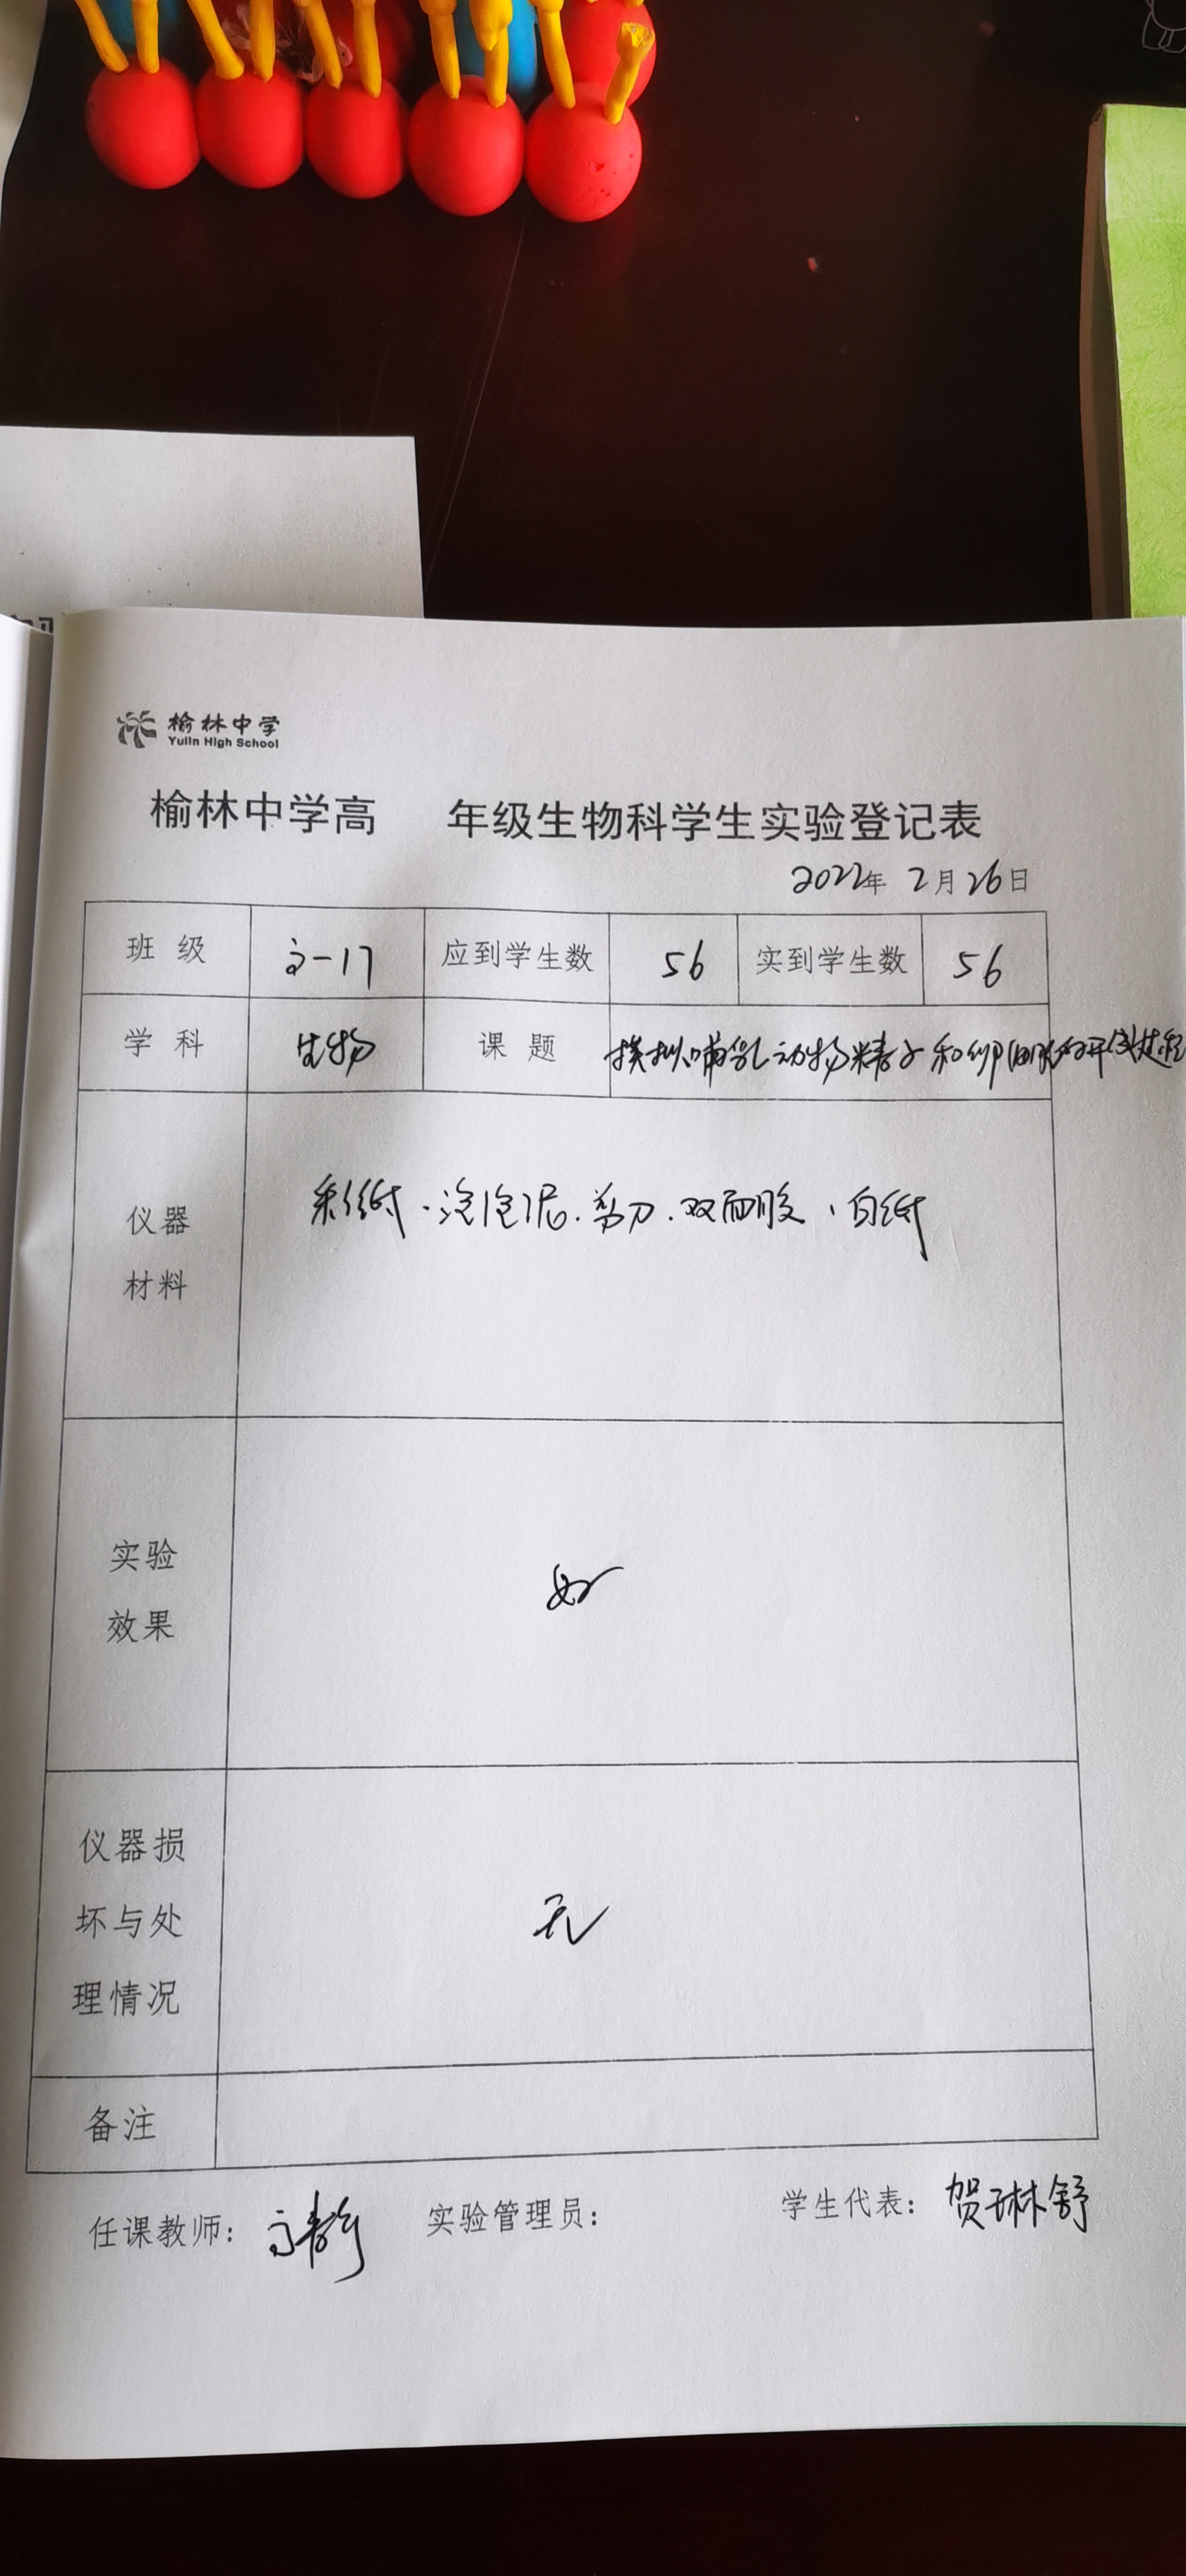 榆林中学
Yulin High School
榆林中学高 年级生物科学生实验登记表
2022年 2月26日
班 级 高一17 应到学生数 56 实到学生数 56
学 科 生物 课 题 模拟哺乳动物精子和卵细胞的形成过程
仪器
材料
彩纸、泡泡泥、剪刀、双面胶、白纸
实验
效果
好
仪器损
坏与处
理情况
无
备注
任课教师: 高静 实验管理员: 学生代表: 贺琳舒